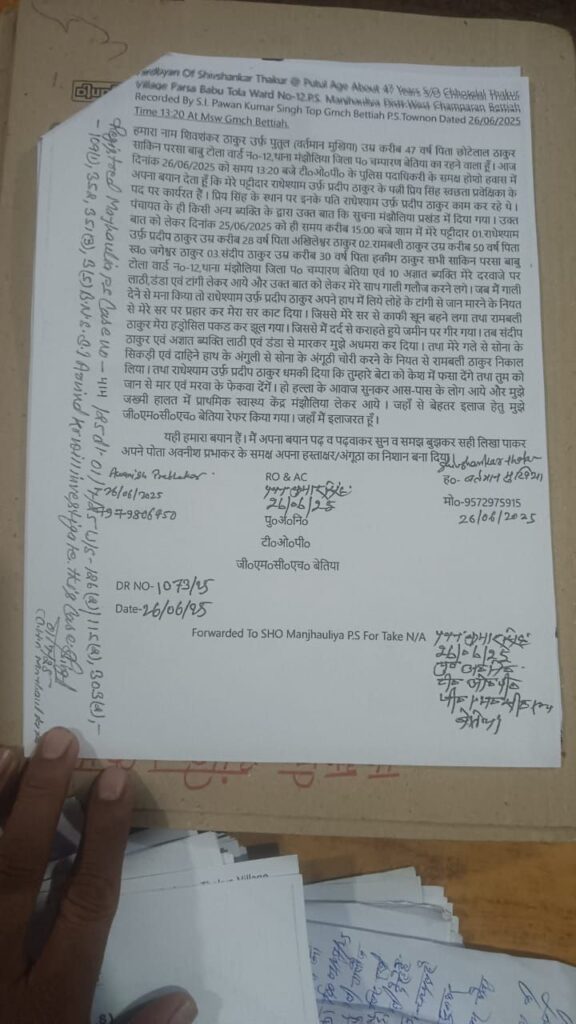 Fardbyan Of Shivshankar Thakur @ Putul Age About 47 Years S/O Chhotelal Thakur
Village Parsa Babu Tola Ward No-12,P.S. Manjhauliya Distt-West Champaran Bettiah
Recorded By S.I. Pawan Kumar Singh Top Gmch Bettiah P.S.Townon Dated 26/06/2025
Time 13:20 At Msw Gmch Bettiah.
हमारा नाम शिवशंकर ठाकुर उर्फ़ पुतुल (वर्तमान मुखिया) उम्र करीब 47 वर्ष पिता छोटेलाल ठाकुर
साकिन परसा बाबु टोला वार्ड न०-12,थाना मंझौलिया जिला प० चम्पारण बेतिया का रहने वाला हूँ। आज
दिनांक 26/06/2025 को समय 13:20 बजे टी०ओ०पी० के पुलिस पदाधिकारी के समक्ष होशो हवास में
अपना बयान देता हूँ कि मेरे पट्टीदार राधेश्याम उर्फ़ प्रदीप ठाकुर के पत्नी प्रिय सिंह स्वछता प्रवेक्षिका के
पद पर कार्यरत हैं। प्रिय सिंह के स्थान पर इनके पति राधेश्याम उर्फ़ प्रदीप ठाकुर काम कर रहे थे।
पंचायत के ही किसी अन्य व्यक्ति के द्वारा उक्त बात कि सुचना मंझौलिया प्रखंड में दिया गया। उक्त
बात को लेकर दिनांक 25/06/2025 को ही समय करीब 15:00 बजे शाम में मेरे पट्टीदार 01.राधेश्याम
उर्फ़ प्रदीप ठाकुर उम्र करीब 28 वर्ष पिता अखिलेश्वर ठाकुर 02.रामबली ठाकुर उम्र करीब 50 वर्ष पिता
स्व० जगेश्वर ठाकुर 03.संदीप ठाकुर उम्र करीब 30 वर्ष पिता हकीम ठाकुर सभी साकिन परसा बाबु
टोला वार्ड न०-12,थाना मंझौलिया जिला प० चम्पारण बेतिया एवं 10 अज्ञात व्यक्ति मेरे दरवाजे पर
लाठी,डंडा एवं टांगी लेकर आये और उक्त बात को लेकर मेरे साथ गाली गलौज करने लगे। जब मैं गाली
देने से मना किया तो राधेश्याम उर्फ़ प्रदीप ठाकुर अपने हाथ में लिये लोहे के टांगी से जान मारने के नियत
से मेरे सर पर प्रहार कर मेरा सर काट दिया। जिससे मेरे सर से काफी खून बहने लगा तथा रामबली
ठाकुर मेरा हड्रोसिल पकड कर झूल गया। जिससे में दर्द से कराहते हुये जमीन पर गीर गया। तब संदीप
ठाकुर एवं अज्ञात ब्यक्ति लाठी एवं डंडा से मारकर मुझे अधमरा कर दिया। तथा मेरे गले से सोना के
सिकड़ी एवं दाहिने हाथ के अंगुली से सोना के अंगूठी चोरी करने के नियत से रामबली ठाकुर निकाल
लिया। तथा राधेश्याम उर्फ़ प्रदीप ठाकुर धमकी दिया कि तुम्हारे बेटा को केश में फसा देंगे तथा तुम को
जान से मार एवं मरवा के फेकवा देंगें। हो हल्ला के आवाज सुनकर आस-पास के लोग आये और मुझे
जख्मी हालत में प्राथमिक स्वास्थ्य केंद्र मंझौलिया लेकर आये। जहाँ से बेहतर इलाज हेतु मुझे
जी०एम०सी०एच० बेतिया रेफर किया गया। जहाँ मैं इलाजरत हूँ।
यही हमारा बयान हैं। मैं अपना बयान पढ़ व पढवाकर सुन व समझ बुझकर सही लिखा पाकर
अपने पोता अवनीश प्रभाकर के समक्ष अपना हस्ताक्षर/अंगूठा का निशान बना दिया।
Avanish Prabhakar
26/06/2025
7979806950
RO & AC
पवन कुमार सिंह
26/06/25
पु०अ०नि०
टी०ओ०पी०
जी०एम०सी०एच० बेतिया
Shivshankar Thakur
ह०- वर्तमान मुखिया
मो०-9572975915
26/06/2025
DR NO-1073/25
Date-26/06/25
Forwarded To SHO Manjhauliya P.S For Take N/A
पवन कुमार सिंह
26/06/25
पु० अ० नि०
टी० ओ० पी०
बेतिया
Registered Majhaulia PS Case no - 414/25 dt-01/07/25 U/S-126(2)/115(2), 303(2),-
-109(1), 352, 351(3), 3(5) B.N.S. S.I Arvind Kr will investigate this Case
01/07/25